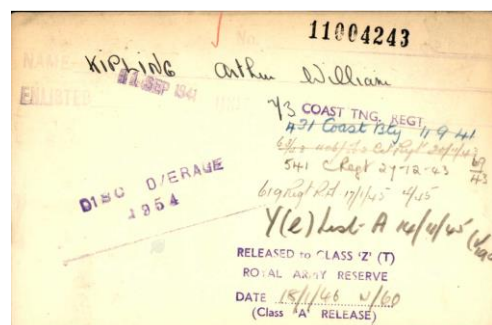 No.
11004243
NAME
KIPLING Arthur William
ENLISTED
11 SEP 1941
Y/3 COAST TNG. REGT
431 Coast Bty 11 9 41
541 C Regt 27-12-43
619 Regt RA 17/1/45
DISC O/ERAGE
1954
Y(e) List A 14/11/45
RELEASED to CLASS 'Z' (T)
ROYAL ARMY RESERVE
DATE 18/1/46 N/60
(Class 'A' RELEASE)